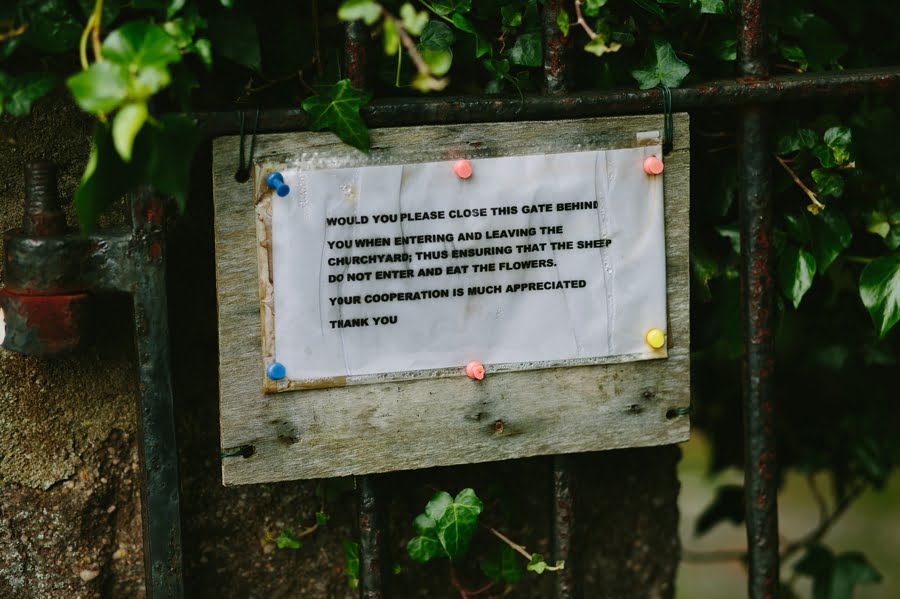 WOULD YOU PLEASE CLOSE THIS GATE BEHIND
YOU WHEN ENTERING AND LEAVING THE
CHURCHYARD; THUS ENSURING THAT THE SHEEP
DO NOT ENTER AND EAT THE FLOWERS.
YOUR COOPERATION IS MUCH APPRECIATED
THANK YOU